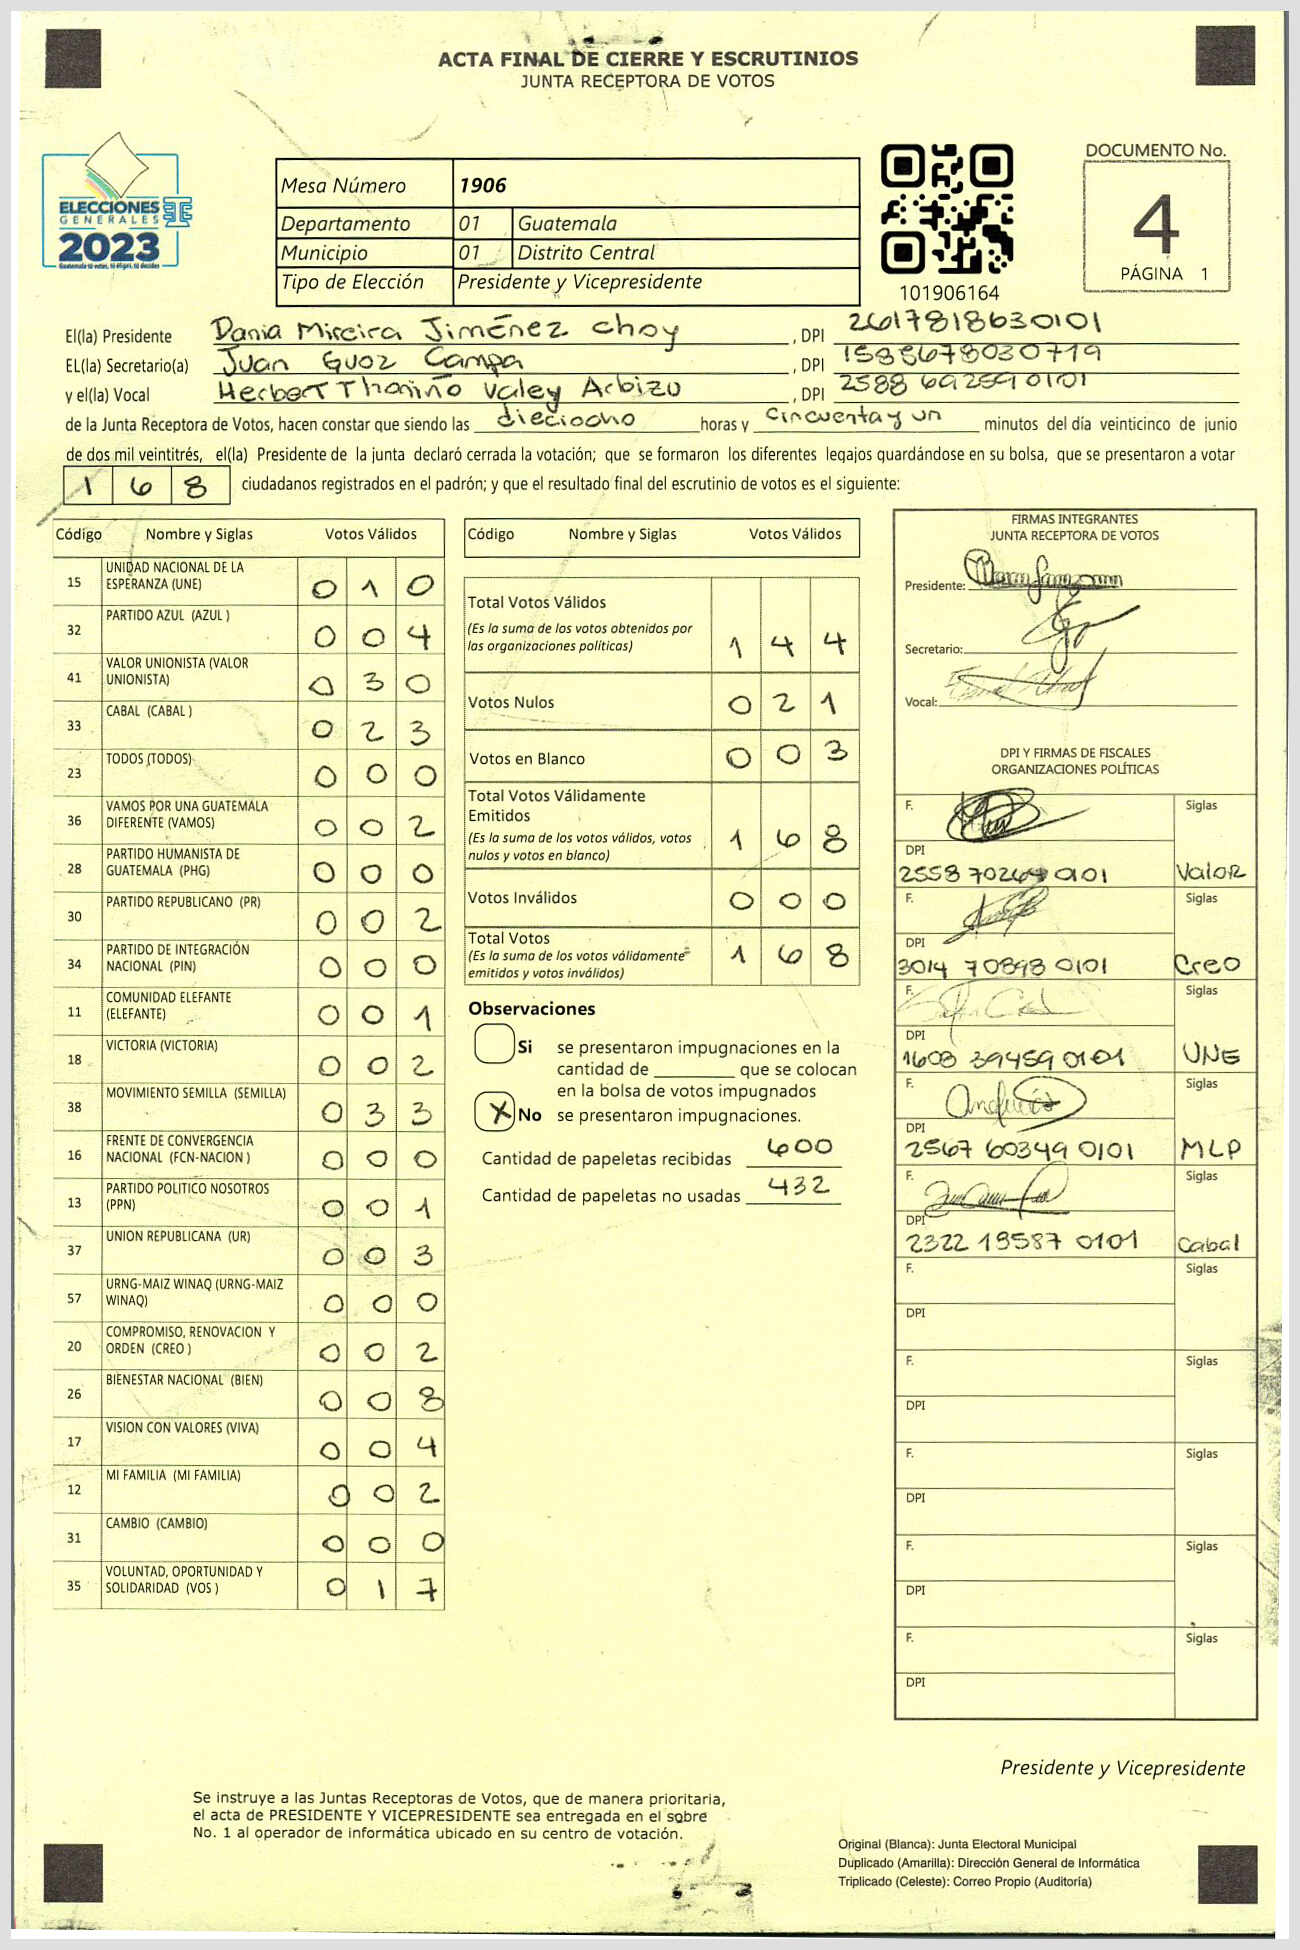 ACTA FINAL DE CIERRE Y ESCRUTINIOS
JUNTA RECEPTORA DE VOTOS
ELECCIONES
GENERALES
2023
Guatemala tú votas, tú eliges, tú decides
Mesa Número 1906
Departamento 01 Guatemala
Municipio 01 Distrito Central
Tipo de Elección Presidente y Vicepresidente
101906164
DOCUMENTO No.
4
PÁGINA 1
El(la) Presidente Dania Mireira Jiménez Choy , DPI 2617818630101
EL(la) Secretario(a) Juan Guoz Campa , DPI 1588678030719
y el(la) Vocal Herbert Thoniño Valey Arbizu , DPI 2588 692590101
de la Junta Receptora de Votos, hacen constar que siendo las dieciocho horas y cincuenta y un minutos del día veinticinco de junio
de dos mil veintitrés, el(la) Presidente de la junta declaró cerrada la votación; que se formaron los diferentes legajos quardándose en su bolsa, que se presentaron a votar
1 6 8 ciudadanos registrados en el padrón; y que el resultado final del escrutinio de votos es el siguiente:
Código Nombre y Siglas Votos Válidos
15 UNIDAD NACIONAL DE LA ESPERANZA (UNE) 0 1 0
32 PARTIDO AZUL (AZUL ) 0 0 4
41 VALOR UNIONISTA (VALOR UNIONISTA) 0 3 0
33 CABAL (CABAL ) 0 2 3
23 TODOS (TODOS) 0 0 0
36 VAMOS POR UNA GUATEMALA DIFERENTE (VAMOS) 0 0 2
28 PARTIDO HUMANISTA DE GUATEMALA (PHG) 0 0 0
30 PARTIDO REPUBLICANO (PR) 0 0 2
34 PARTIDO DE INTEGRACIÓN NACIONAL (PIN) 0 0 0
11 COMUNIDAD ELEFANTE (ELEFANTE) 0 0 1
18 VICTORIA (VICTORIA) 0 0 2
38 MOVIMIENTO SEMILLA (SEMILLA) 0 3 3
16 FRENTE DE CONVERGENCIA NACIONAL (FCN-NACION ) 0 0 0
13 PARTIDO POLITICO NOSOTROS (PPN) 0 0 1
37 UNION REPUBLICANA (UR) 0 0 3
57 URNG-MAIZ WINAQ (URNG-MAIZ WINAQ) 0 0 0
20 COMPROMISO, RENOVACION Y ORDEN (CREO ) 0 0 2
26 BIENESTAR NACIONAL (BIEN) 0 0 8
17 VISION CON VALORES (VIVA) 0 0 4
12 MI FAMILIA (MI FAMILIA) 0 0 2
31 CAMBIO (CAMBIO) 0 0 0
35 VOLUNTAD, OPORTUNIDAD Y SOLIDARIDAD (VOS ) 0 1 7
Código Nombre y Siglas Votos Válidos
Total Votos Válidos
(Es la suma de los votos obtenidos por
las organizaciones políticas) 1 4 4
Votos Nulos 0 2 1
Votos en Blanco 0 0 3
Total Votos Válidamente
Emitidos
(Es la suma de los votos válidos, votos
nulos y votos en blanco) 1 6 8
Votos Inválidos 0 0 0
Total Votos
(Es la suma de los votos válidamente
emitidos y votos inválidos) 1 6 8
Observaciones
Si se presentaron impugnaciones en la
cantidad de ________ que se colocan
en la bolsa de votos impugnados
X No se presentaron impugnaciones.
Cantidad de papeletas recibidas 600
Cantidad de papeletas no usadas 432
FIRMAS INTEGRANTES
JUNTA RECEPTORA DE VOTOS
Presidente:
Secretario:
Vocal:
DPI Y FIRMAS DE FISCALES
ORGANIZACIONES POLÍTICAS
F. Siglas
DPI
2558 70269 0101 Valor
F. Siglas
DPI
3014 70898 0101 Creo
F. Siglas
DPI
1608 39459 0101 UNE
F. Siglas
DPI
2567 60349 0101 MLP
F. Siglas
DPI
2322 19587 0101 Cabal
F. Siglas
DPI
F. Siglas
DPI
F. Siglas
DPI
F. Siglas
DPI
F. Siglas
DPI
Presidente y Vicepresidente
Se instruye a las Juntas Receptoras de Votos, que de manera prioritaria,
el acta de PRESIDENTE Y VICEPRESIDENTE sea entregada en el sobre
No. 1 al operador de informática ubicado en su centro de votación.
Original (Blanca): Junta Electoral Municipal
Duplicado (Amarilla): Dirección General de Informática
Triplicado (Celeste): Correo Propio (Auditoría)